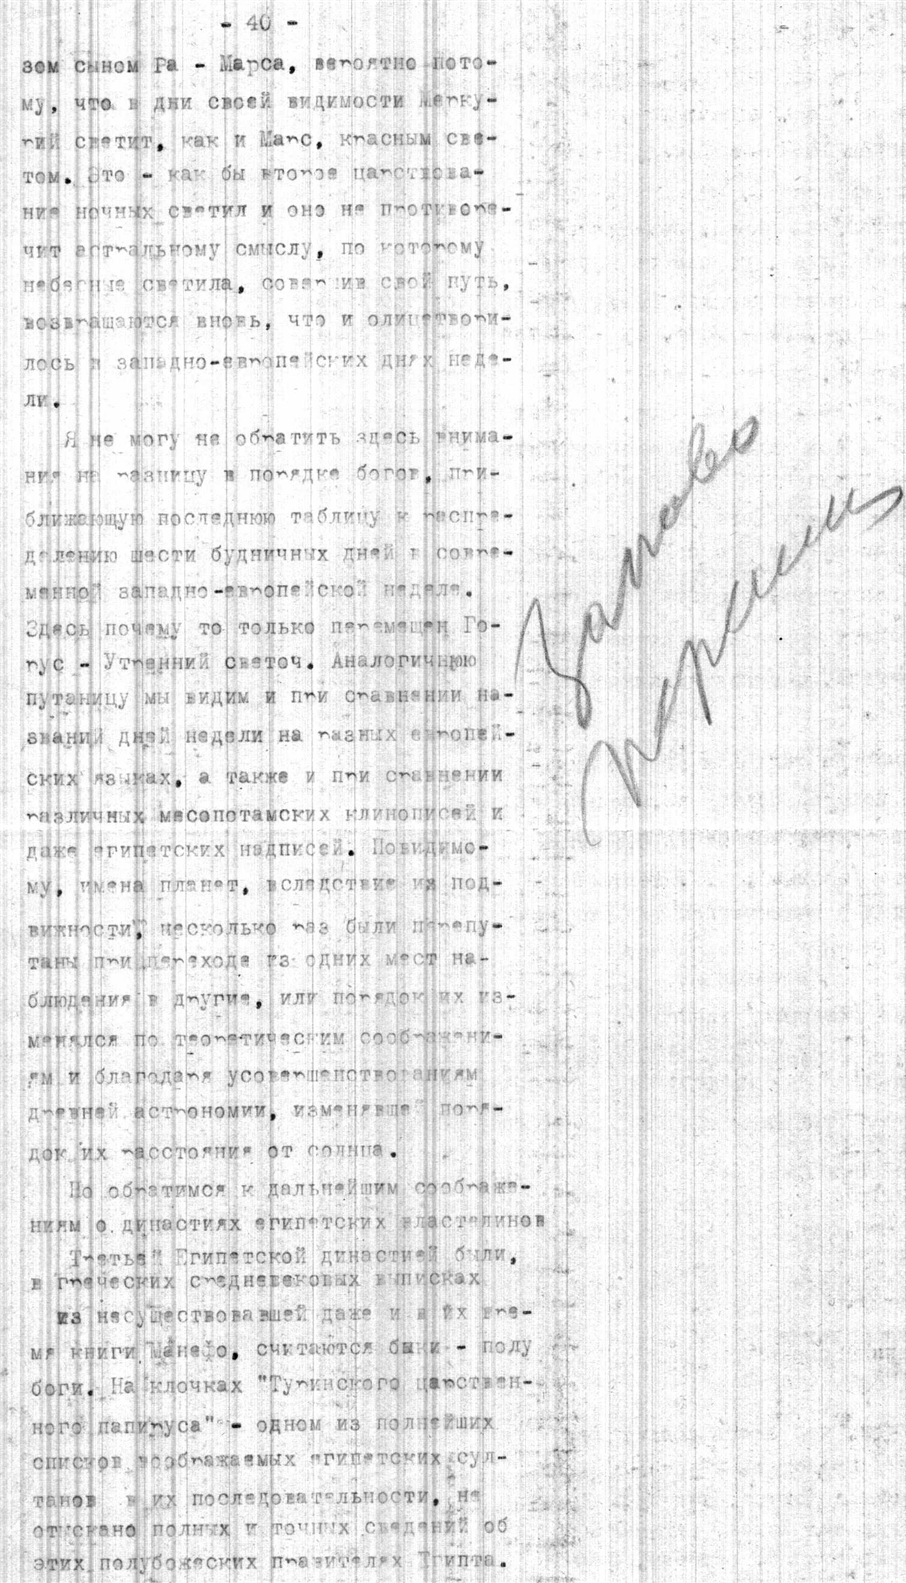 - 40 -
зом сыном Ра - Марса, вероятно пото-
му, что в дни своей видимости Мерку-
рий светит, как и Марс, красным све-
том. Это - как бы второе царствова-
ние ночных светил и оно не противоре-
чит астральному смыслу, по которому
небесные светила, совершив свой путь,
возвращаются вновь, что и олицетвори-
лось в западно-европейских днях неде-
ли.
Я не могу не обратить здесь внима-
ния на разницу в порядке богов, при-
ближающую последнюю таблицу к распре-
делению шести будничных дней в совре-
менной западно-европейской неделе.
Здесь почему то только перемещен Го-
рус - Утренний светоч. Аналогичную
путаницу мы видим и при сравнении на-
званий дней недели на разных европей-
ских языках, а также и при сравнении
различных месопотамских клинописей и
даже египетских надписей. Повидимо-
му, имена планет, вследствие их под-
вижности, несколько раз были перепу-
таны при переходе из одних мест на-
блюдения в другие, или порядок их из-
менялся по теоретическим соображени-
ям и благодаря усовершенствованиям
древней астрономии, изменявшей поря-
док их расстояния от солнца.
Но обратимся к дальнейшим соображе-
ниям о династиях египетских властелинов
Третьей Египетской династией были,
в греческих средневековых выписках
из несуществовавшей даже и в их вре-
мя книги Манефо, считаются быки - полу
боги. На клочках "Туринского царствен-
ного папируса" - одном из полнейших
списков воображаемых египетских сул-
танов в их последовательности, не
отыскано полных и точных сведений об
этих полубожеских правителях Египта.